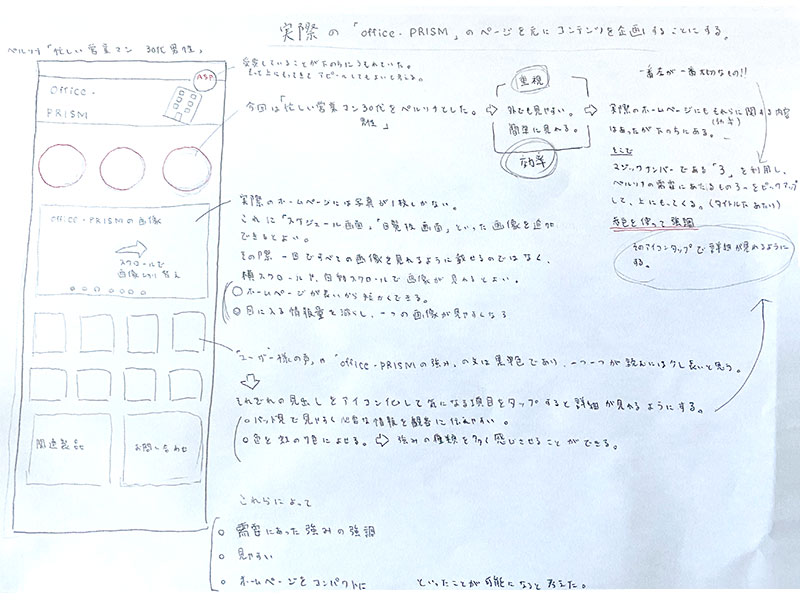 実際の「office・PRISM」のページを元にコンテンツを企画することにする。
ペルソナ「忙しい営業マン 30代男性」
ASP
受賞していることが下のほうにうもれていた。
もっと上にもってきて アピールしてもよいと考える。
Office・
PRISM
今回は「忙しい営業マン30代をペルソナとした。
男性」
重視
外でも見やすい。
簡単に見れる。
効率
一番左が一番大切なもの!!
実際のホームページにもそれらに関する内容
(効率)
はあったが下のほうにある。
そこで
マジックナンバーである「3」を利用し、
ペルソナの需要にあたるもの3つをピックアップ
して、上にもってくる。(タイトル下あたり)
赤色を使って強調
そのアイコンタップで詳細が見れるように
する。
office・PRISMの画像
スクロールで
画像切り替え
実際のホームページには写真が1枚しかない。
これに「スケジュール画面」「回覧板画面」といった画像を追加
できるとよい。
その際一目ですべての画像を見れるように載せるのではなく、
横スクロールや、自動スクロールで画像が見れるとよい。
○ホームページが長いから短かくできる。
○目に入る情報量を減らし、一つの画像が見やすくなる
「ユーザー様の声」や「office・PRISMの強み」の文は黒単色であり、一つ一つが読むには少し長いと思う。
それぞれの見出しをアイコン化して気になる項目をタップすると詳細が見れるようにする。
○パッと見で見やすく必要な情報を観客に伝えやすい。
○色を虹の7色によせる。⇨ 強みの種類を多く感じさせることができる。
関連製品
お問い合わせ
これらによって
○ 需要にあった強みの強調
○ 見やすい
○ ホームページをコンパクトに といったことが可能になると考えた。